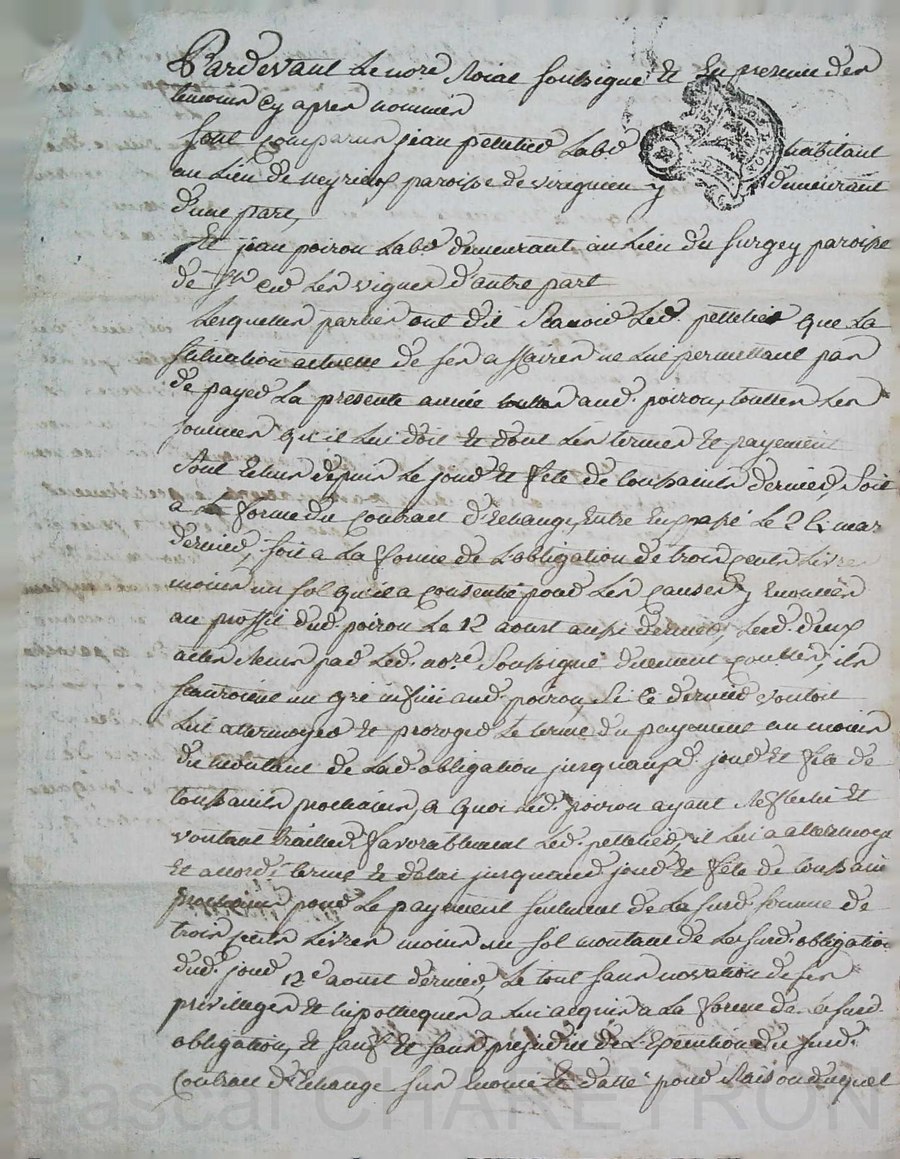 Pardevant Le nore Roial soussigné et En presence des
temoins Cy apres nommés
sont Comparus jean pelletier Labr habitant
au Lieu de meyrieu paroisse de virignieu y demeurant
d'une part,
Et jean poirou Labr demeurant au Lieu du surgey paroisse
de st Cir Les vignes d'autre part
Lesquelles parties ont dit Scavoir Led. pelletier que La
situation actuelle de ses affaires ne Lui permettant pas
de payer La presente année aud. poirou, touttes Les
sommes qu'il Lui doit et dont Les termes et payement
sont Echus depuis Le jour et fete de toussaints dernier, soit
a La forme du Contrat d'Echange, Entre Eux passé Le mars
dernier, soit a La forme de L'obligation de trois cents Livres
moins un sol qu'il a Consentie pour Les Causes y Enoncées
au proffit dud. poirou Le 12 aoust aussi dernier, Lesd. deux
actes Reçus par Led. nore. soussigné duement Controllés, ils
scauroient un gré infini aud. poirou, si Ce dernier vouloit
Lui attermoyer et proroger Le terme du payement au moins
du montant de Lad. obligation jusqu'auxd. jour et fete de
toussaints prochains, a quoi Led. poirou ayant Reflechi et
voulant traitter favorablement Led. pelletier, il Lui a attermoyé
et accordé terme et delai jusqu'auxd. jour et fete de toussaint
prochains pour Le payement seulement de La susd. somme de
trois cents Livres moins un sol montant de La susd. obligation
dud. jour 12e aoust dernier, Le tout sans novation de ses
privilleges et hipotheques a Lui acquis a La forme de La susd.
obligation, et sauf et sans prejudice de L'Execution du susd.
Contrat d'Echange sus Enoncé et datté pour Raison duquel
Pascal CHAREYRON